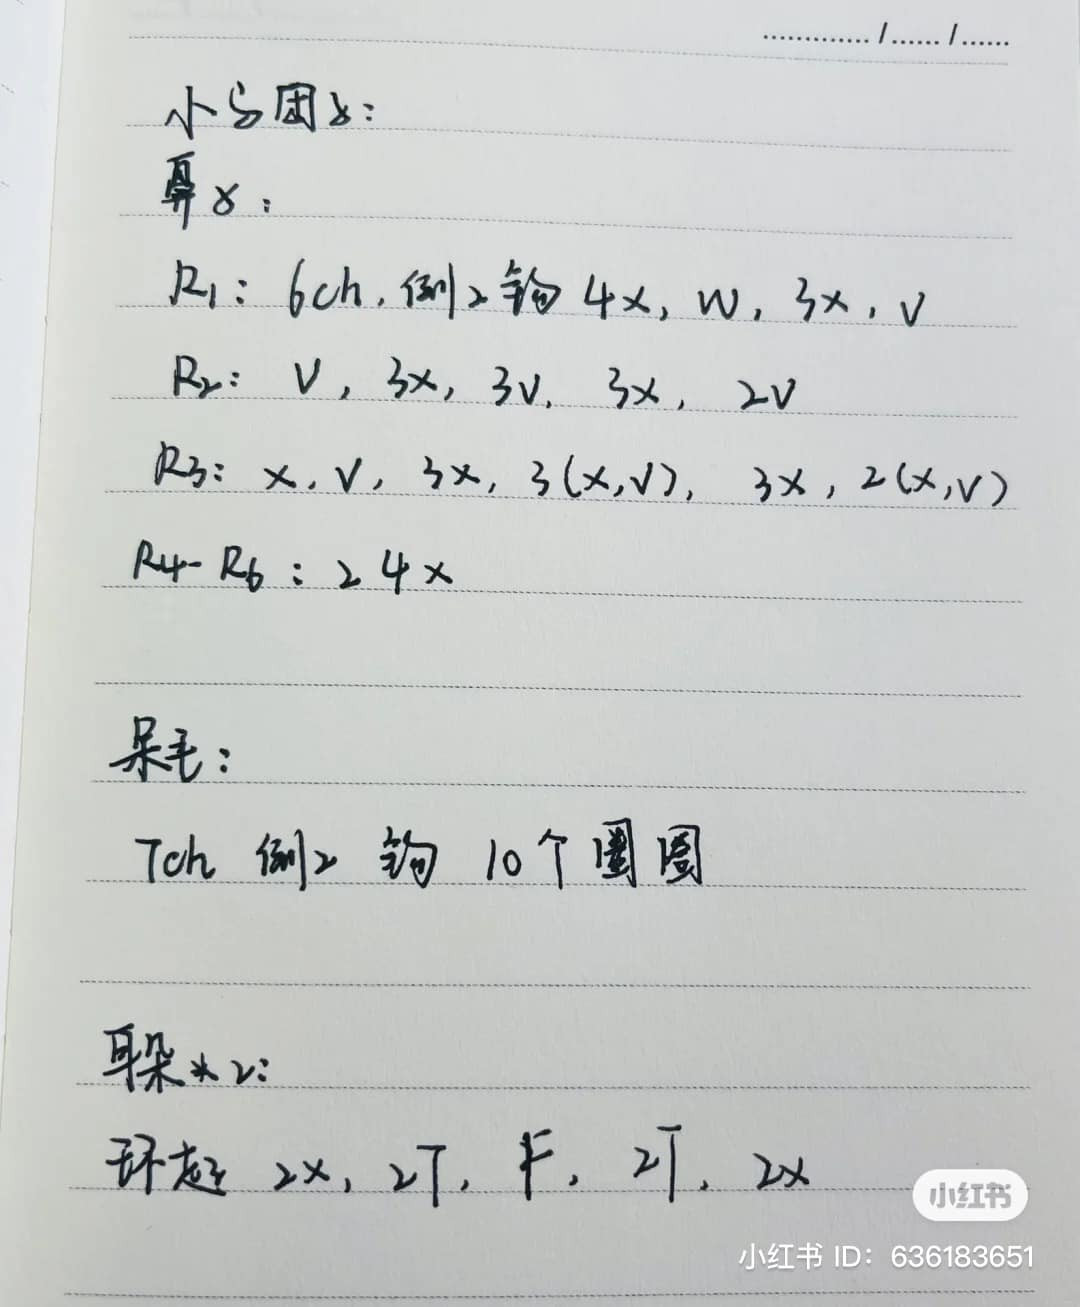 ............./....../......
小马团子:
鼻子:
R1: 6ch, 倒2钩 4x, w, 3x, v
R2: V, 3x, 3v, 3x, 2v
R3: x, v, 3x, 3(x,v), 3x, 2(x,v)
R4-R6: 24x
呆毛:
7ch 倒2 钩 10个圈圈
耳朵*2:
环起 2x, 2T, F, 2T, 2x
小红书
小红书 ID: 636183651